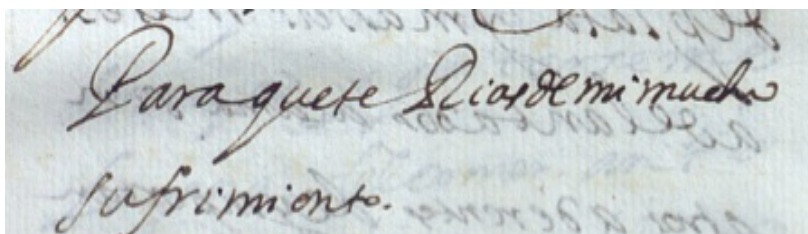 Paraquete Riasdemimucho
sufrimiento.